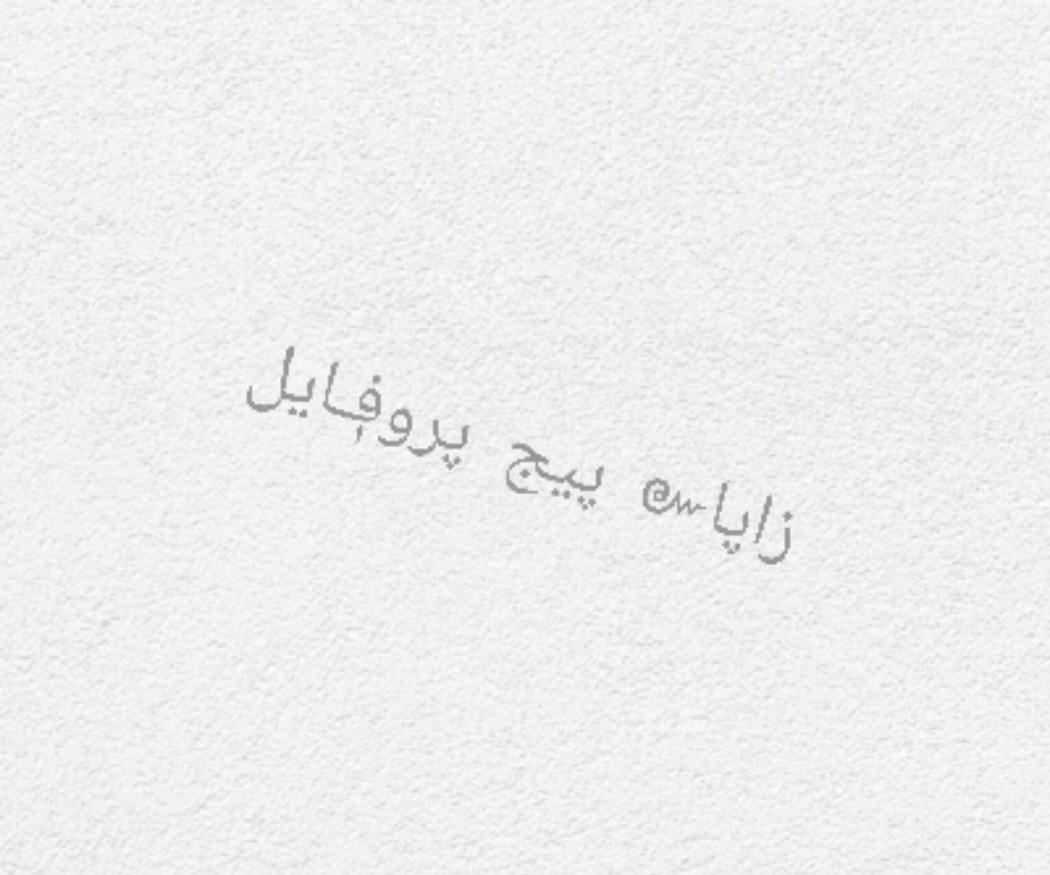 زاپاس پیج پروفٖایل